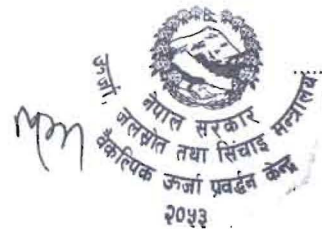 नेपाल सरकार
ऊर्जा, जलस्रोत तथा सिंचाइ मन्त्रालय
वैकल्पिक ऊर्जा प्रवर्द्धन केन्द्र
२०५३